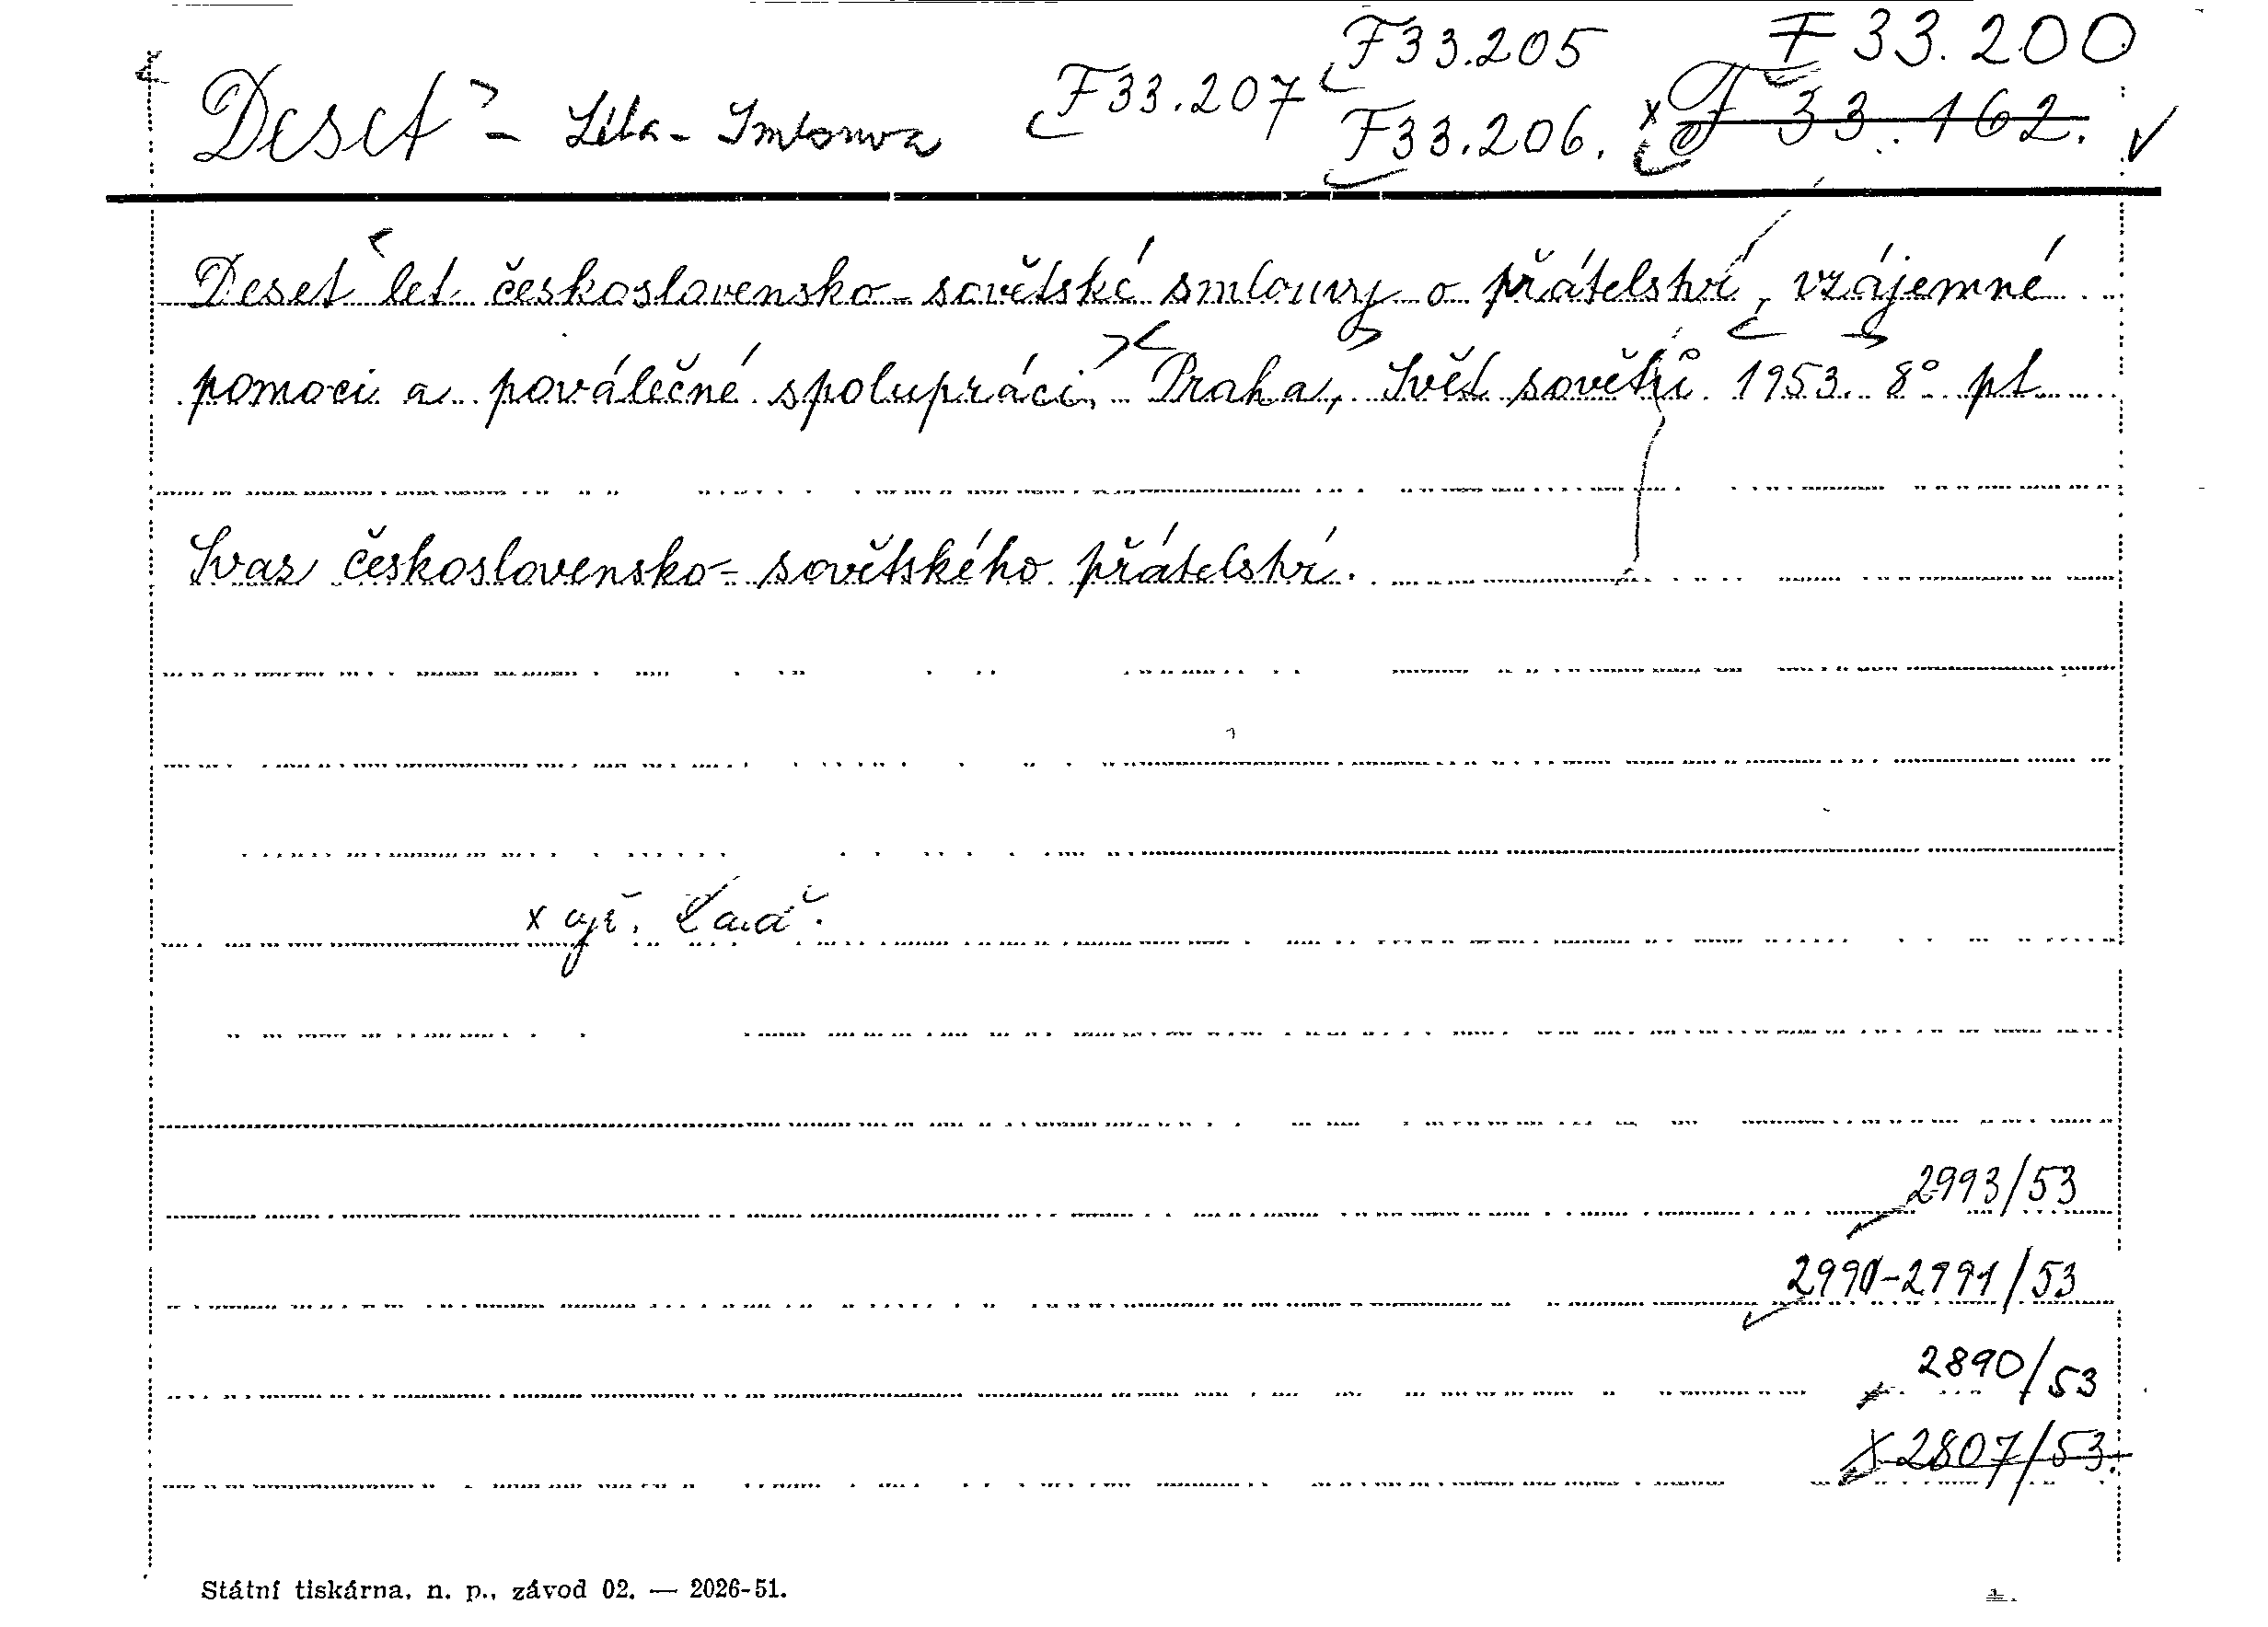 F 33.200
F 33.205
F 33.207
F 33.206.
x F 33.162.
Deset - Léta - Smlouva
Deset let československo-sovětské smlouvy o přátelství, vzájemné
pomoci a poválečné spolupráci, Praha, Svět sovětů 1953. 8° pt.
Svaz československo-sovětského přátelství.
2993/53
2990-2991/53
2890/53
x 2807/53.
Státní tiskárna, n. p., závod 02. — 2026-51.